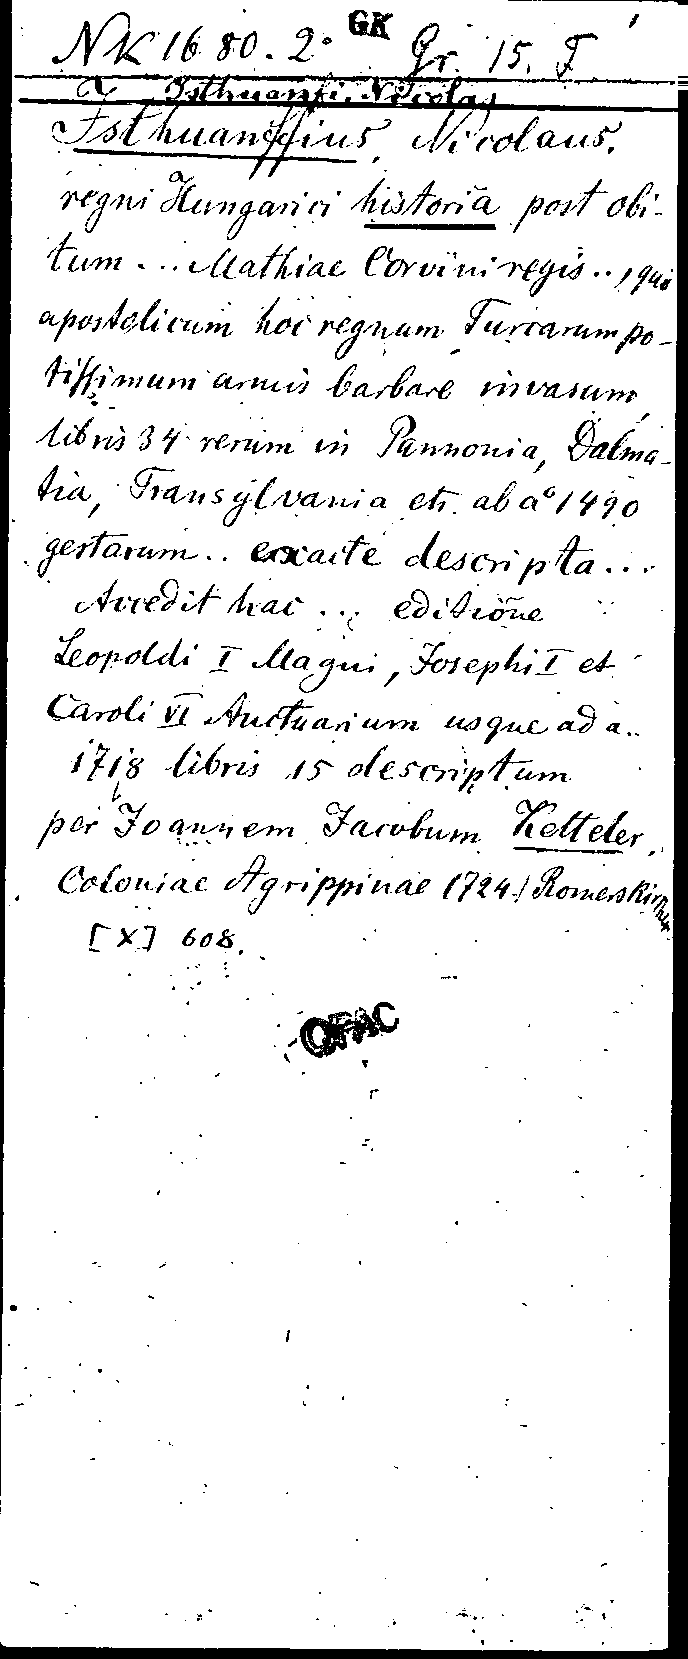 NK 1680. 2° GK Gr. 15. F.
I Isthuanfi, Nicolaus
Isthuanffius, Nicolaus.
regni Hungarici historia post obi-
tum ... Mathiae Corvini regis .. , quo
apostolicum hoc regnum Turcarum po-
tissimum armis barbare invasum,
libris 34 rerum in Pannonia, Dalma-
tia, Transylvania etc. ab a° 1490
gestarum .. exacte descripta ...
Accedit hac ... editione
Leopoldi I Magni, Josephi I et
Caroli VI Auctuarium usque ad a..
1718 libris 15 descriptum
per Joannem Jacobum Ketteler.
Coloniae Agrippinae 1724.) Romerskirchen
[X] 608.
OPAC